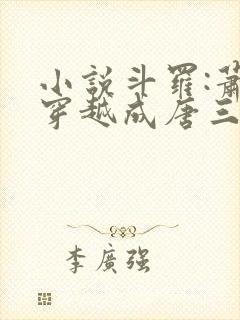 小説斗羅:蕭
穿越成唐三
李廣强